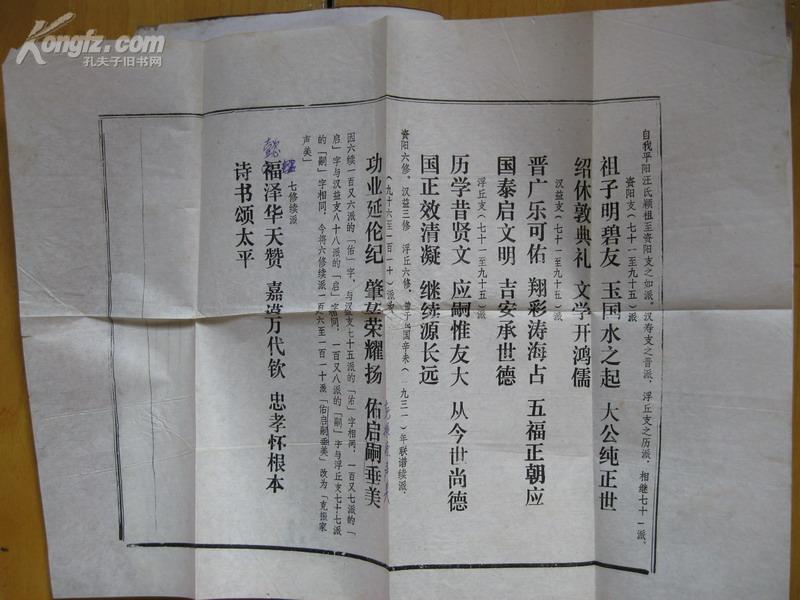 Kongfz.com
孔夫子旧书网
自我平阳汪氏颖祖至资阳支之如派，汉寿支之晋派，浮丘支之历派，相继七十一派，
资阳支（七十一至九十五）派
祖子明碧友 玉国水之起 大公纯正世
绍休敦典礼 文学开鸿儒
汉益支（七十一至九十五）派
晋广乐可佑 翔彩涛海占 五福正朝应
国泰启文明 吉安承世德
浮丘支（七十一至九十五）派
历学昔贤文 应嗣惟友大 从今世尚德
国正效清凝 继续源长远
资阳六修，汉益三修 浮丘六修，曾于民国辛未（一九三一）年联谱续派，
（九十六至一百一十）派
功业延伦纪 肇 荣耀扬 佑启嗣垂美
因六续一百又六派的「佑」字，与汉益支七十五派的「佑」字相同，一百又七派的「
启」字与汉益支八十八派的「启」字相同，一百又八派的「嗣」字与浮丘支七十七派
的「嗣」字相同，今将六修续派一百又六至一百一十派「佑启嗣垂美」改为「克振家
声美」
七修续派
福泽华天赞 嘉谟万代钦 忠孝怀根本
诗书颂太平